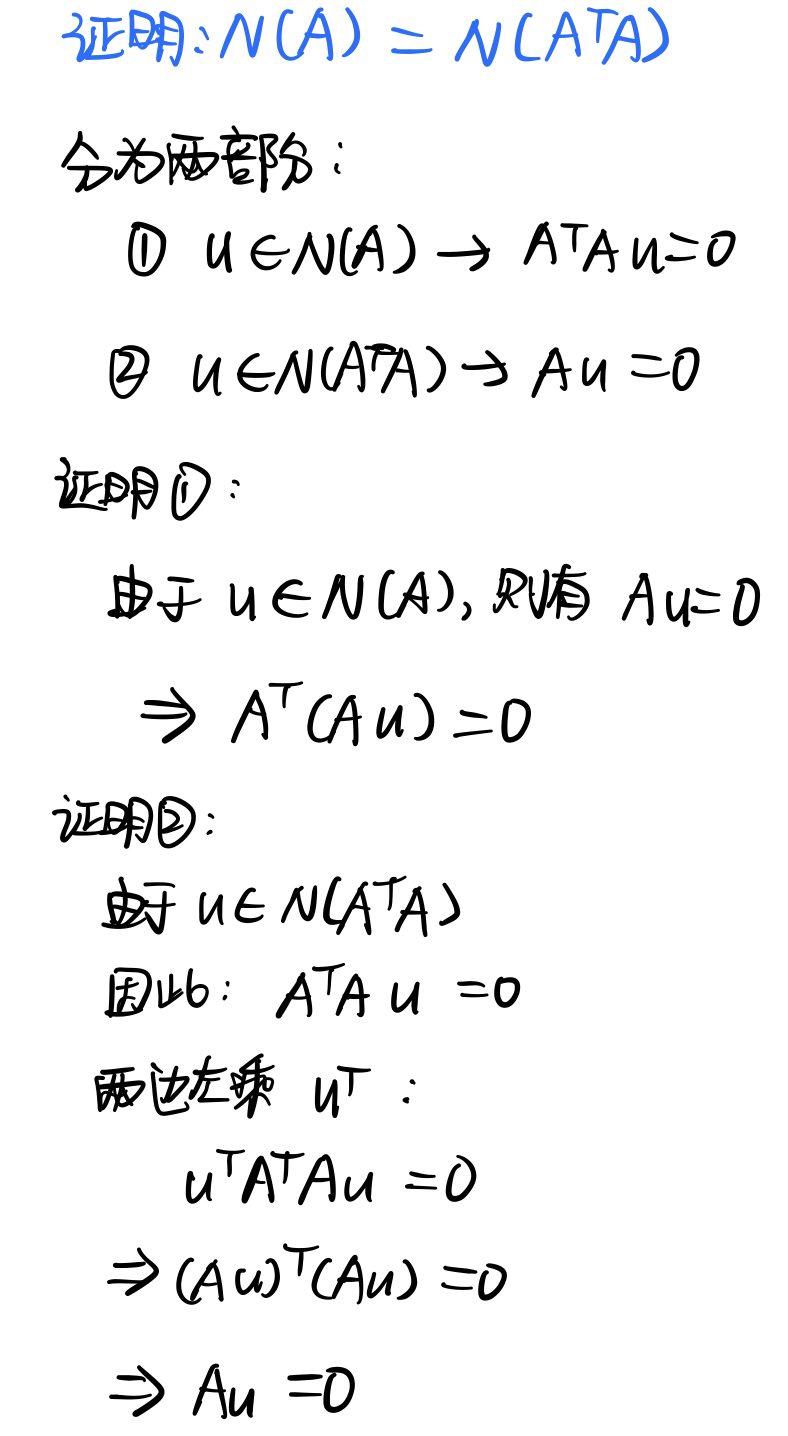 证明:N(A) = N(AᵀA)
分为两部分:
① u∈N(A) → AᵀAu=0
② u∈N(AᵀA) → Au=0
证明①:
由于 u∈N(A), 则有 Au=0
⇒ Aᵀ(Au)=0
证明②:
由于 u∈N(AᵀA)
因此: AᵀAu=0
两边左乘 uᵀ:
uᵀAᵀAu=0
⇒ (Au)ᵀ(Au)=0
⇒ Au=0